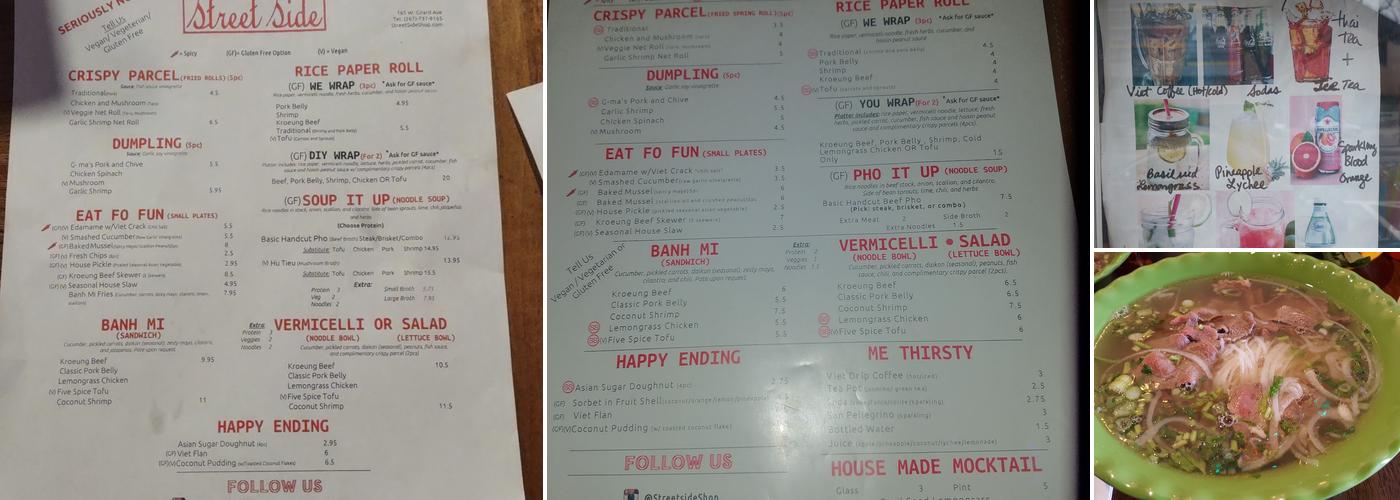 SERIOUSLY
Tell Us
Vegan/Vegetarian/
Gluten Free
Street Side
165 W. Girard Ave
StreetSideShop.com
= Spicy (GF)= Gluten Free Option (V) = Vegan
CRISPY PARCEL (FRIED ROLLS) (5pc)
Traditional 4.5
Chicken and Mushroom
(V) Veggie Net Roll
Garlic Shrimp Net Roll 6.5
DUMPLING (5pc)
Sauce: Garlic soy vinaigrette
G-ma's Pork and Chive 5.5
Chicken Spinach
(V) Mushroom
Garlic Shrimp 5.95
EAT FO FUN (SMALL PLATES)
(GF) Edamame w/Viet Crack 5.5
(V) Smashed Cucumber 5.5
(GF) Baked Mussel 8
(GF) Fresh Chips (8pc) 2.5
(V) House Pickle 2.95
(GF) Kroeung Beef Skewer 8.5
(GF) Seasonal House Slaw 4.95
Banh Mi Fries 7.95
BANH MI
(SANDWICH)
Cucumber, pickled carrots, daikon (seasonal), zesty mayo, cilantro,
and jalapenos. Pate upon request
Kroeung Beef 9.95
Classic Pork Belly
Lemongrass Chicken
(V) Five Spice Tofu
Coconut Shrimp 11
RICE PAPER ROLL
(GF) WE WRAP (3pc) *Ask for GF sauce*
Pork Belly 4.95
Shrimp
Kroeung Beef
Traditional (Shrimp and Pork Belly) 5.5
(V) Tofu
(GF) DIY WRAP (For 2) *Ask for GF sauce*
Beef, Pork Belly, Shrimp, Chicken OR Tofu 20
(GF) SOUP IT UP (NOODLE SOUP)
(Choose Protein)
Basic Handcut Pho (Beef Broth) Steak/Brisket/Combo
Substitute: Tofu Chicken Pork Shrimp 14.95
(V) Hu Tieu (Mushroom Broth) 13.95
Substitute: Tofu Chicken Pork Shrimp 15.5
Extra:
Protein 3 Small Broth
Veg 2 Large Broth 7.95
Noodles 2
Extra:
Protein 3
Veggies 2
Noodles 2
VERMICELLI OR SALAD
(NOODLE BOWL) (LETTUCE BOWL)
Cucumber, pickled carrots, daikon (seasonal), peanuts, fish sauce,
and complimentary crispy parcel (2pcs)
Kroeung Beef 10.5
Classic Pork Belly
Lemongrass Chicken
(V) Five Spice Tofu
Coconut Shrimp 11.5
HAPPY ENDING
Asian Sugar Doughnut (4pc) 2.95
(GF) Viet Flan 6
(GF)(V) Coconut Pudding (w/Toasted Coconut Flakes) 6.5
FOLLOW US
CRISPY PARCEL (FRIED SPRING ROLL) (5pc)
Traditional 3.5
Chicken and Mushroom 4
(V) Veggie Net Roll 4
Garlic Shrimp Net Roll 5
DUMPLING (5pc)
Sauce: Garlic soy vinaigrette
G-ma's Pork and Chive 4.5
Garlic Shrimp 5.5
Chicken Spinach 5
(V) Mushroom 4.5
EAT FO FUN (SMALL PLATES)
(GF) Edamame w/Viet Crack 3.5
(V) Smashed Cucumber 3.5
(GF) Baked Mussel 6
(GF) Baked Mussel 6
(GF)(V) House Pickle (pickled seasonal asian vegetable) 2.5
(GF) Kroeung Beef Skewer 7
(GF)(V) Seasonal House Slaw 2.5
Tell Us
Vegan/Vegetarian or
Gluten Free
BANH MI
(SANDWICH)
Extra:
Protein 2
Veggies 1
Noodles 1.5
Cucumber, pickled carrots, daikon (seasonal), zesty mayo,
cilantro, and chili. Pate upon request.
Kroeung Beef 6
Classic Pork Belly 5.5
Coconut Shrimp 7.5
Lemongrass Chicken 5.5
(V) Five Spice Tofu 5.5
HAPPY ENDING
Asian Sugar Doughnut (4pc) 2.75
(GF) Sorbet in Fruit Shell (coconut/orange/lemon/pineapple)
(GF) Viet Flan
(GF)(V) Coconut Pudding (w/ toasted coconut flake)
FOLLOW US
@StreetsideShop
RICE PAPER ROLL
(GF) WE WRAP (3pc) *Ask for GF sauce*
Rice paper, vermicelli noodle, fresh herbs, cucumber, and
hoisin peanut sauce
Traditional (shrimp and pork belly) 4.5
Pork Belly 4
Shrimp 4
Kroeung Beef 4
(V) Tofu 4
(GF) YOU WRAP (For 2) *Ask for GF sauce*
Platter includes: rice paper, vermicelli noodle, lettuce, fresh
herbs, pickled carrots, daikon, cucumber, fish sauce and hoisin
peanut sauce and complimentary crispy parcels (4pcs).
Kroeung Beef, Pork Belly, Shrimp, Cold
Lemongrass Chicken OR Tofu
Only 15
(GF) PHO IT UP (NOODLE SOUP)
Rice noodles in beef stock, onion, scallion, and cilantro.
Side of bean sprouts, lime, chili, and herbs
Basic Handcut Beef Pho 7.5
(Pick: steak, brisket, or combo)
Extra Meat 2 Side Broth 2
Extra Noodles 1.5
VERMICELLI • SALAD
(NOODLE BOWL) (LETTUCE BOWL)
Cucumber, pickled carrots, daikon (seasonal), peanuts, fish
sauce, chili, and complimentary crispy parcel (2pcs).
Kroeung Beef 6.5
Classic Pork Belly 6.5
Coconut Shrimp 7.5
Lemongrass Chicken 6
(V) Five Spice Tofu 6
ME THIRSTY
Viet Drip Coffee (hot/iced) 3
Tea Pot (jasmine/ green tea) 2.5
Soda 2.75
San Pellegrino (sparkling) 3
Bottled Water 1.5
Juice (apple/pineapple/coconut/lychee/lemonade) 3
HOUSE MADE MOCKTAIL
Glass 3 Pint 5
Viet Coffee (Hot/cold)
Sodas
thai
tea
+
Ice Tea
Basil seed
Lemongrass
Pineapple
Lychee
Sparkling
Blood
Orange